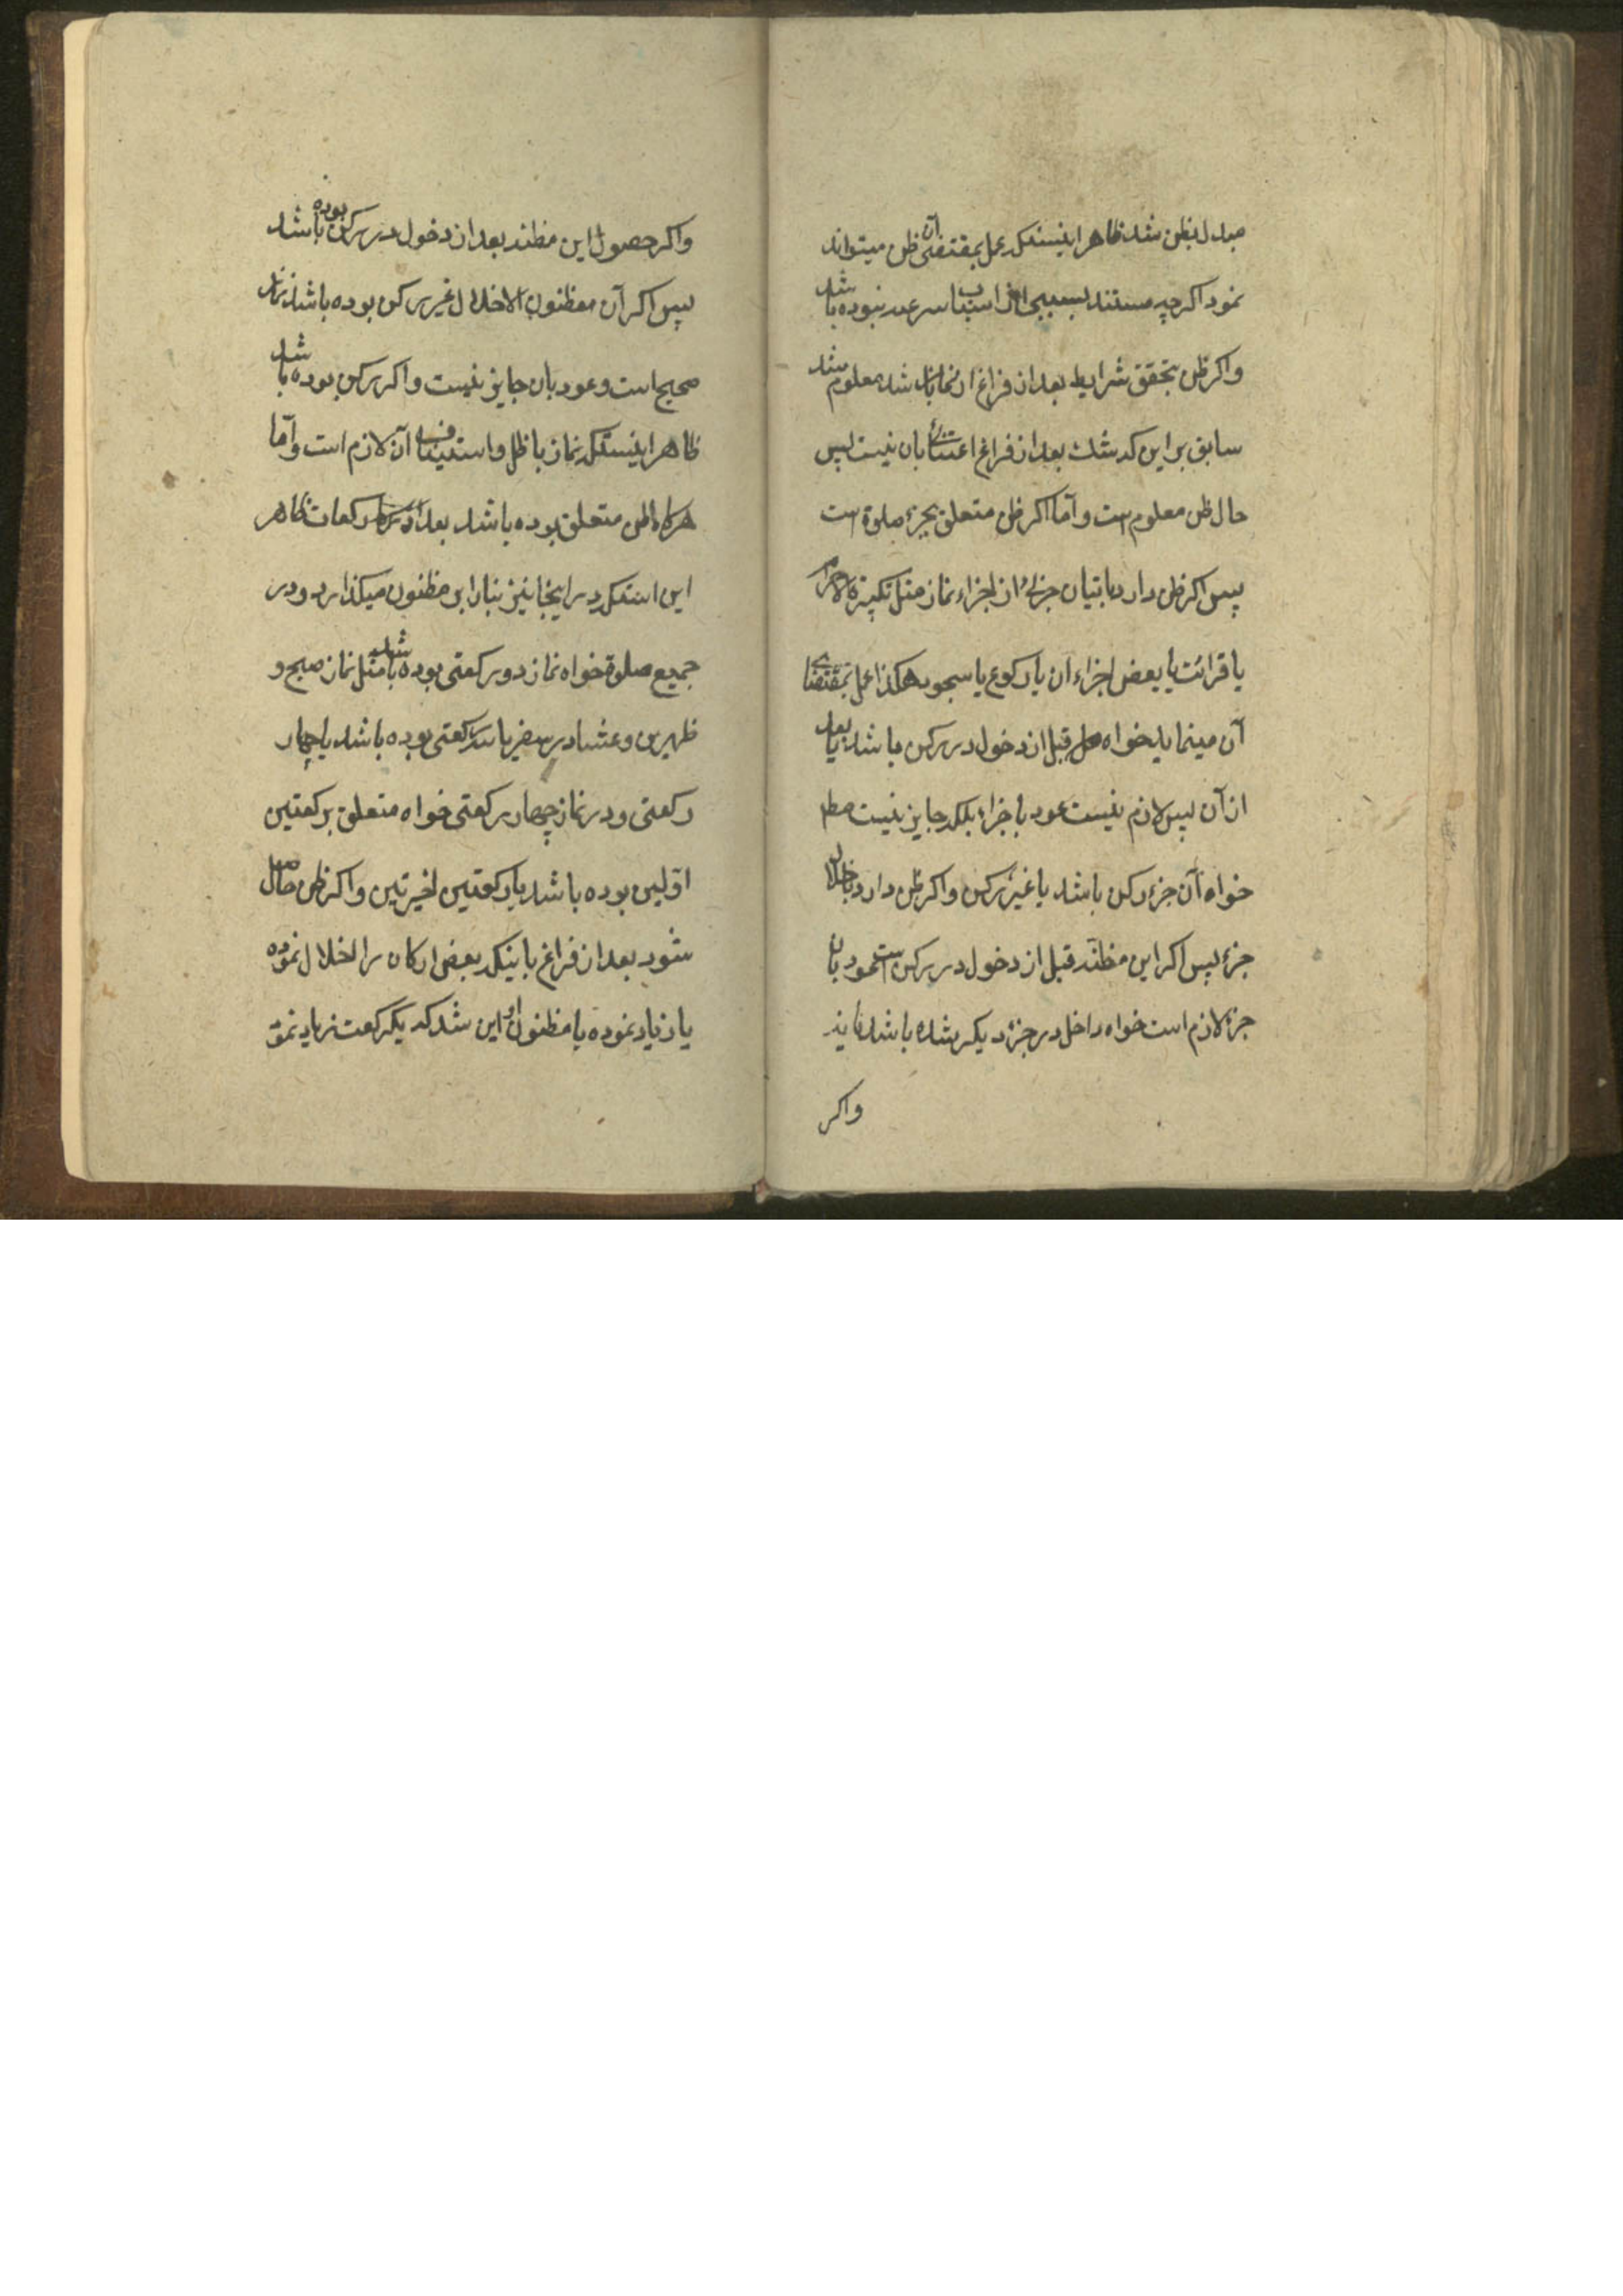 مبدل بظن شد ظاهر اینستکه عمل بمقتضی آن ظن میتواند
نمود اکرچه مستند بسببی از اسباب شرعیه نبوده باشد
واکر ظن بتحقق شرایط بعد از فراغ از نماز باشد معلوم شد
سابق بر این که شک بعد از فراغ اعتنائی بان نیست پس
حال ظن معلوم است و آما اکر ظن متعلق بجزء صلوة است
پس اکر ظن دارد باتیان جزئی از اجزاء نماز مثل تکبیرة الاحرام
یا قرائت یا بعض اجزاء ان یا رکوع یا سجود هکذا عمل بمقتضای
آن مینماید خواه قبل از دخول در رکن باشد یا بعد
از آن پس لازم نیست عود باجزاء بلکه جایز نیست مطلقا
خواه آن جزء رکن باشد یا غیر رکن واکر ظن دارد باخلال
جزء پس اکر این مظنه قبل از دخول در رکن است عود بان
جزء لازم است خواه داخل در جزء دیکر شده باشد یا نه
واکر
واکر حصول این مظنه بعد از دخول در رکن بوده باشد
پس اکر آن مظنون الاخلال غیر رکن بوده باشد نماز
صحیح است و عود بان جایز نیست واکر رکن بوده باشد
ظاهر اینستکه نماز باطل و استیناف آن لازم است و آما
هرکاه ظن متعلق بوده باشد بعدد رکعات ظاهر
این استکه در اینجا نیز بنا را بر مظنون میکذارد و در
جمیع صلوة خواه نماز دو رکعتی بوده باشد مثل نماز صبح و
ظهرین و عشا در سفر یا سه رکعتی بوده باشد یا چهار
رکعتی و در نماز چهار رکعتی خواه متعلق برکعتین
اولیین بوده باشد یا رکعتین اخیرتین واکر ظن حاصل
شود بعد از فراغ باینکه بعض ارکان را اخلال نموده
یا زیاد نموده یا مظنون او این شد که یکرکعت زیاد نموده